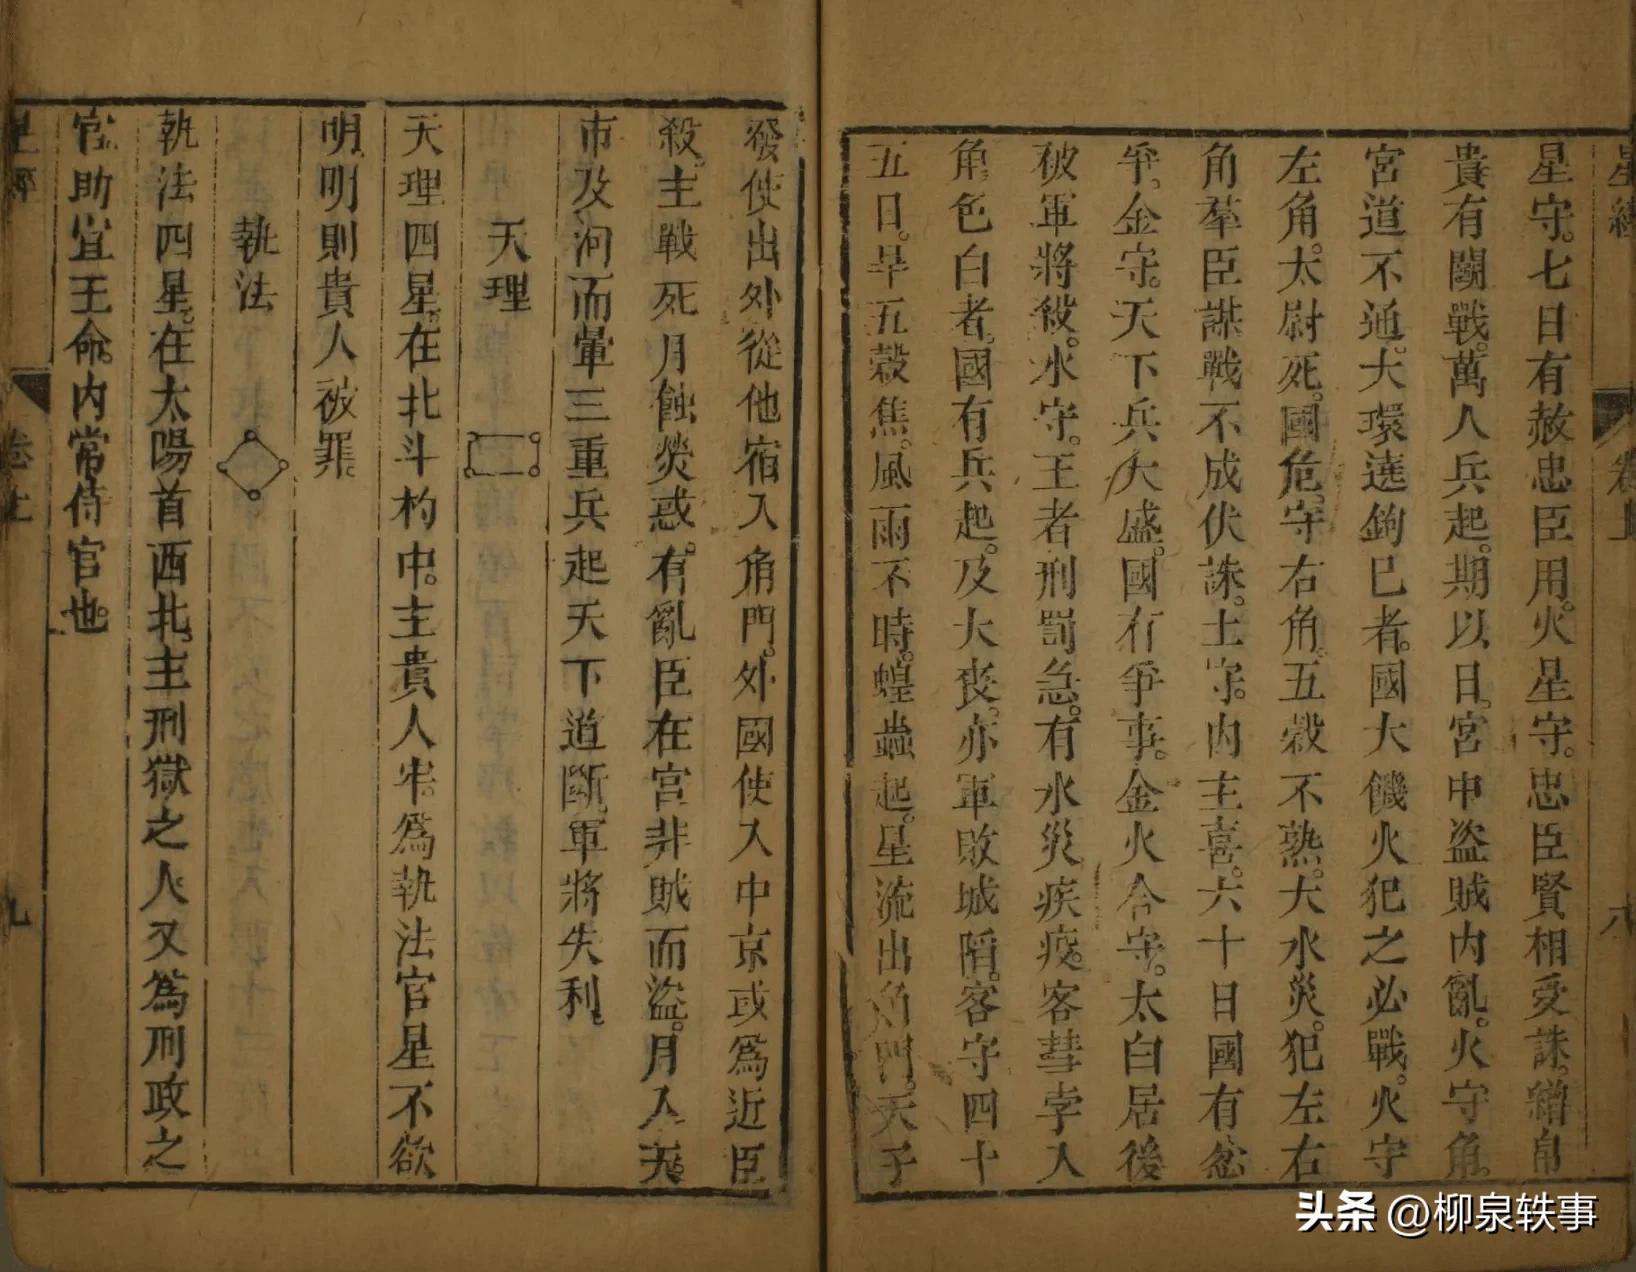 星經
卷上
八
星守。七日有赦忠臣用。火星守。忠臣賢相受誅。繒帛
貴有鬭戰。萬人兵起。期以日。宮中盜賊内亂。火守角。
宮道不通。大環遶鉤巳者。國大饑火犯之必戰。火守
左角。太尉死。國危。守右角。五穀不熟。大水災。犯左右
角羣臣謀戰不成伏誅。土守。内主喜。六十日國有忿
爭。金守。天下兵大盛。國有爭事。金火合守。太白居後
被軍將殺。水守。王者刑罰急。有水災疾疫。客彗孛入
角色白者。國有兵起。及大喪。亦軍敗城陷。客守四十
五日。旱五穀焦。風雨不時。蝗蟲起。星流出角門。天子
發使出外從他宿入角門。外國使入中京或爲近臣
殺。主戰死月蝕熒惑。有亂臣在宮非賊而盜。月入天
市及河而暈三重兵起天下道斷軍將失利。
天理
天理四星。在北斗杓中。主貴人牢。爲執法官星不欲
明。明則貴人被罪。
執法
執法四星。在太陽首西北。主刑獄之人又爲刑政之
官助宣王命。内常侍官也。
星經
卷上
九
头条 @柳泉轶事